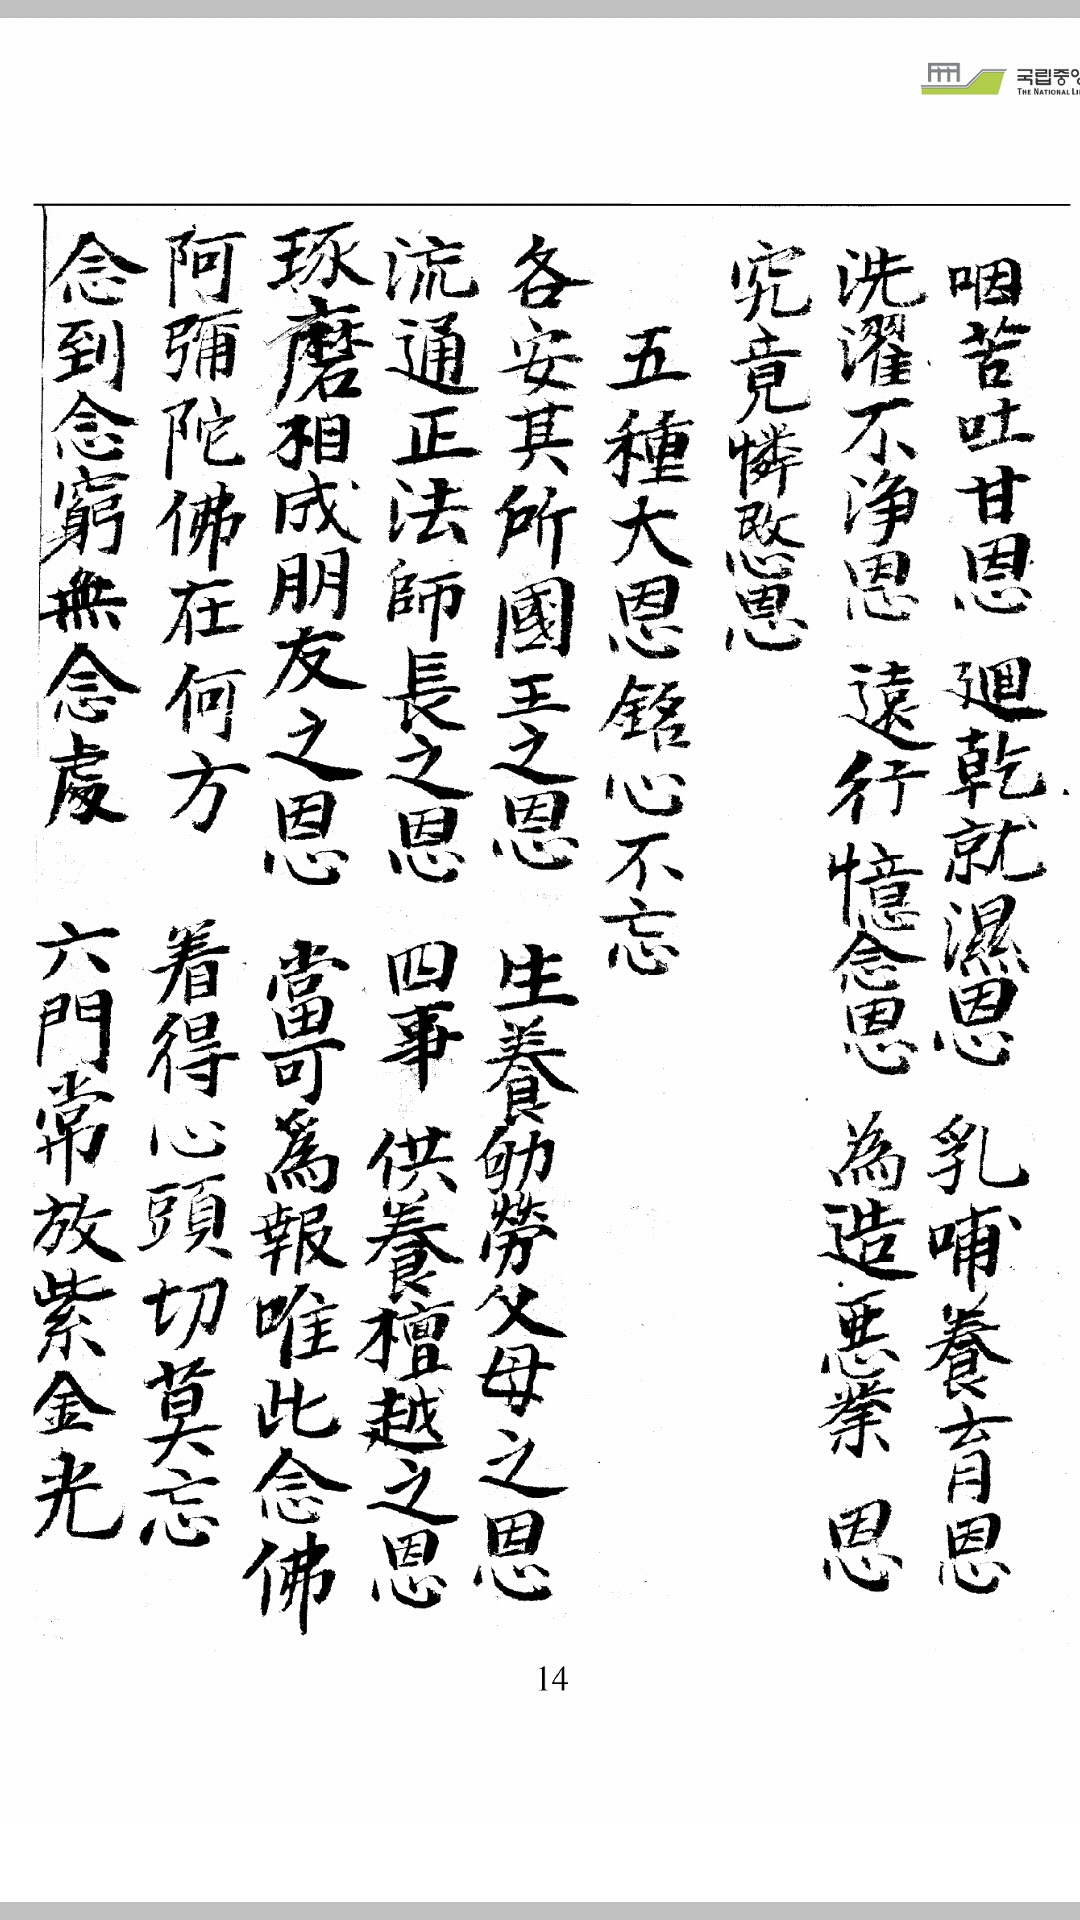 국립중앙
THE NATIONAL LI
咽苦吐甘恩 廻乾就濕恩 乳哺養育恩
洗濯不浄恩 遠行憶念恩 為造悪業恩
究竟憐愍恩
五種大恩銘心不忘
各安其所國王之恩 生養劬勞父母之恩
流通正法師長之恩 四事供養檀越之恩
琢磨相成朋友之恩 當可爲報唯此念佛
阿彌陀佛在何方 着得心頭切莫忘
念到念窮無念處 六門常放紫金光
14